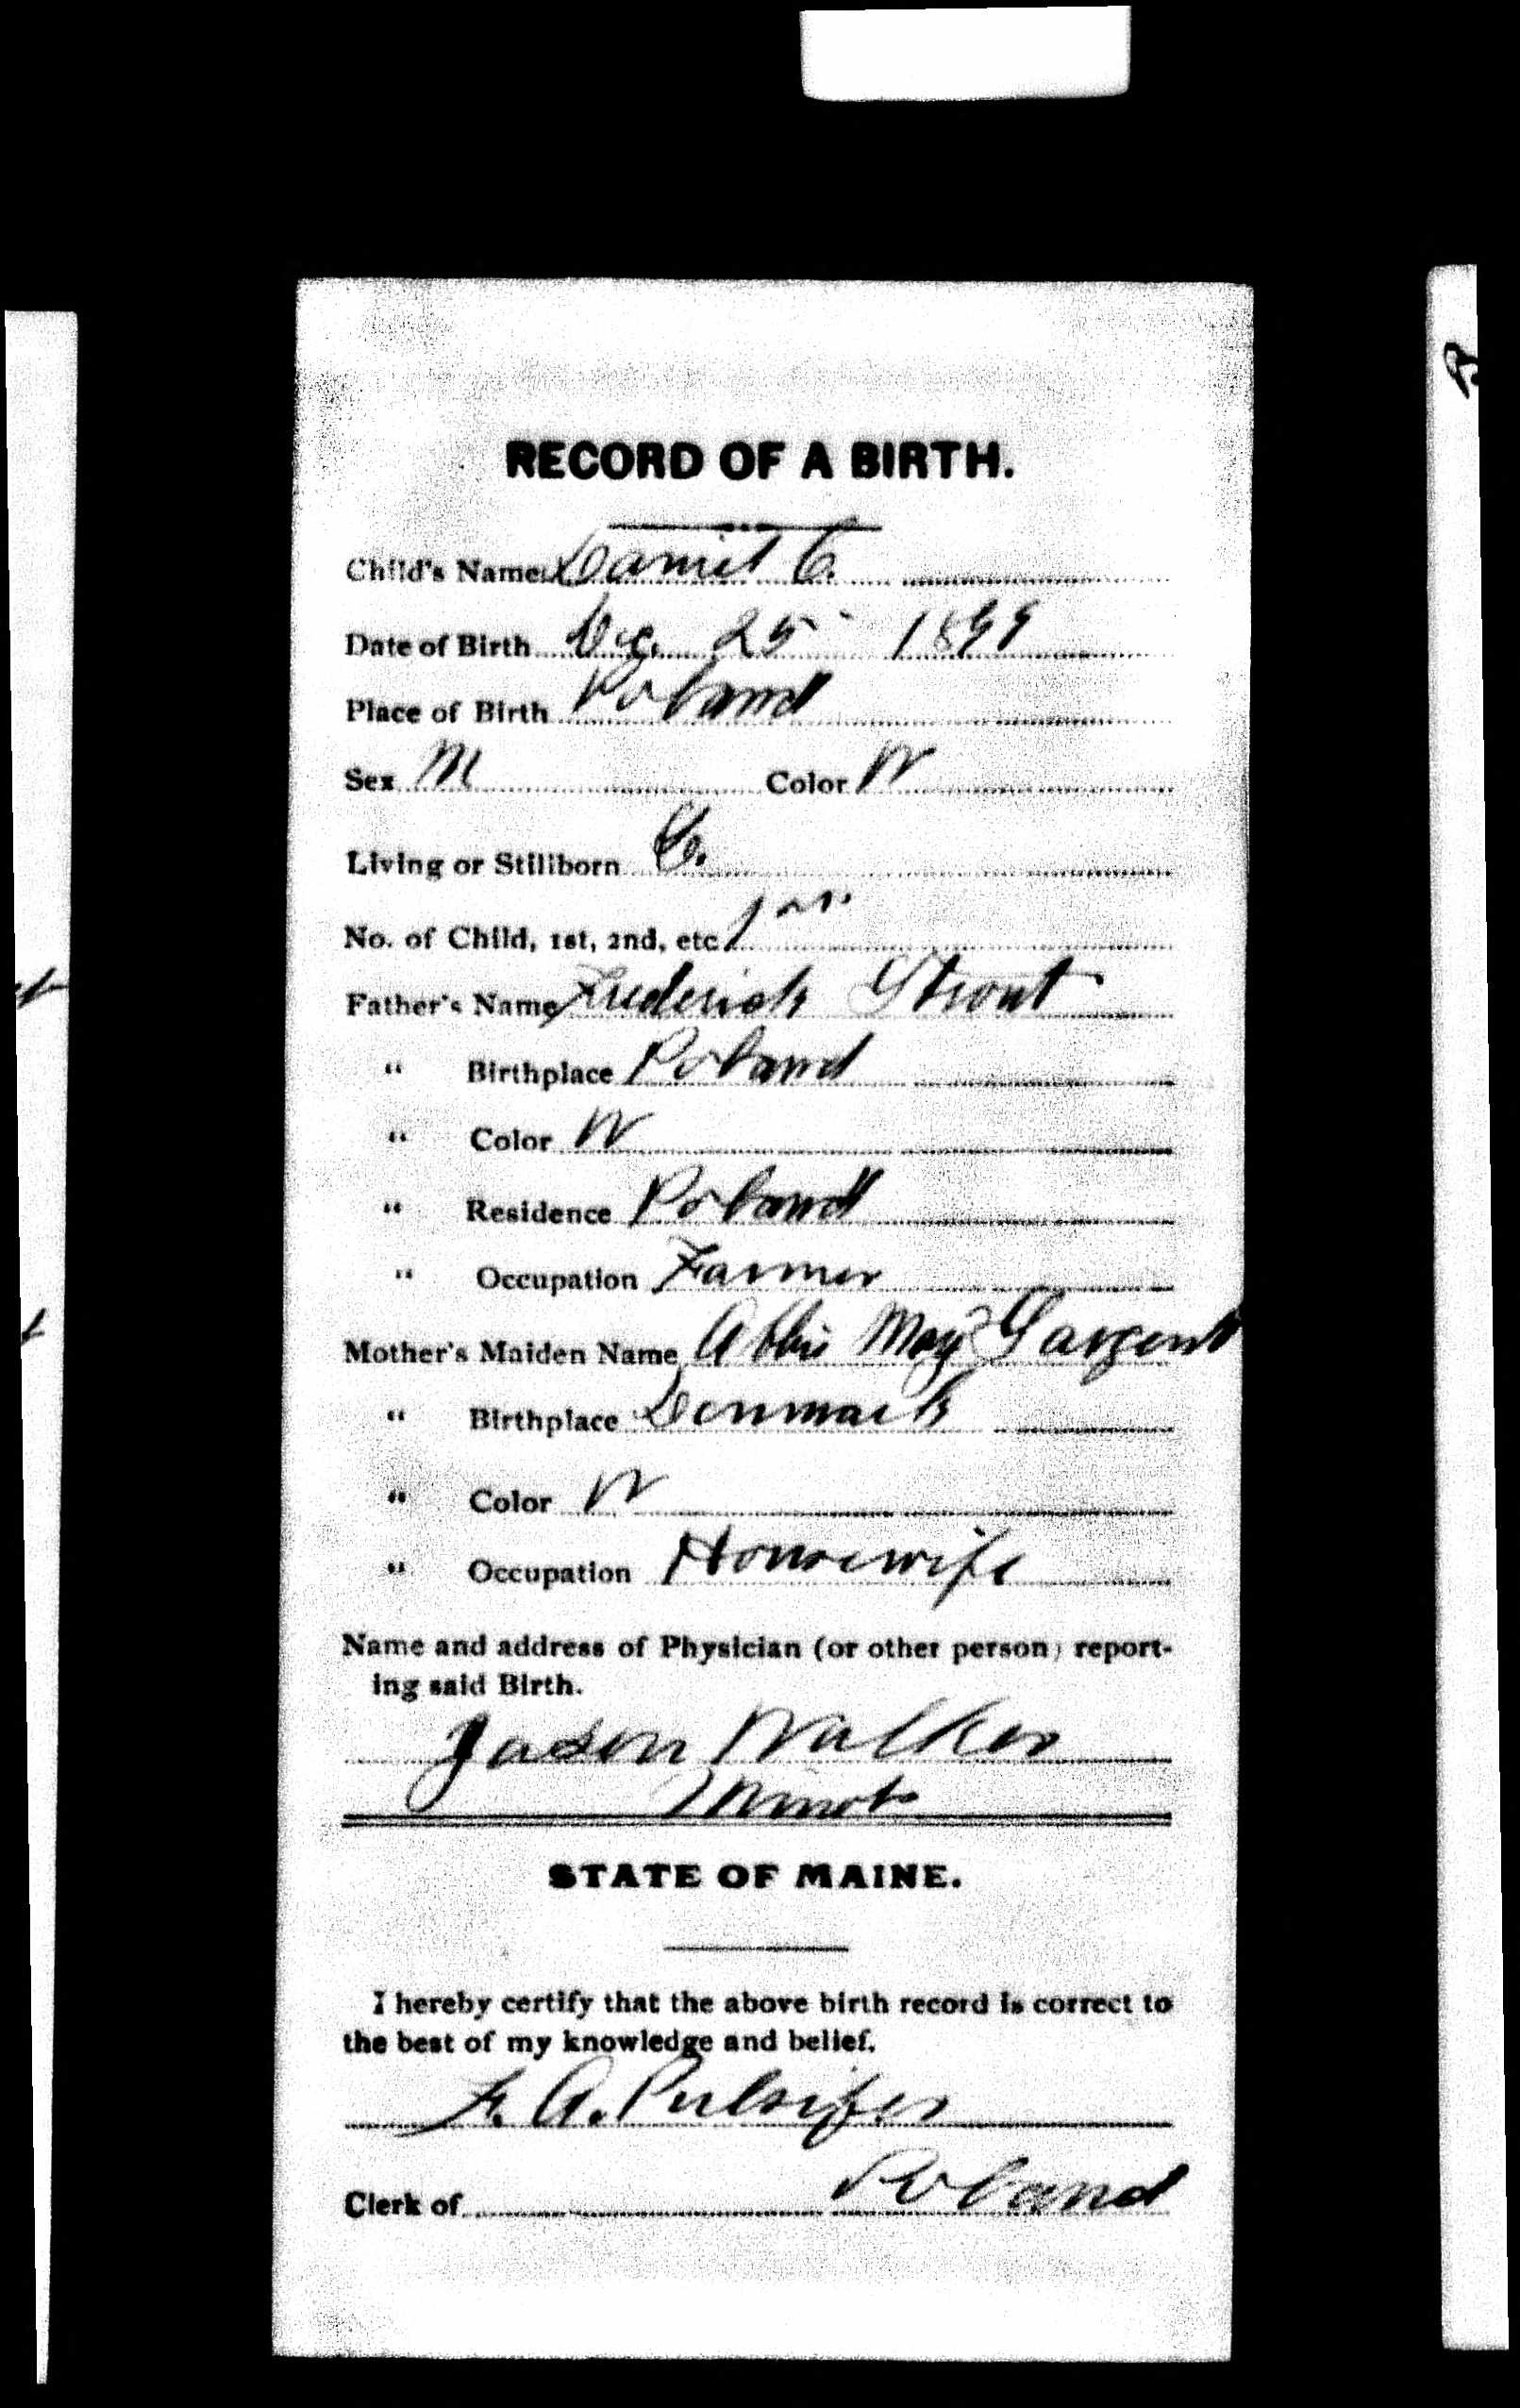 RECORD OF A BIRTH.
Child's Name Daniel C.
Date of Birth Dec. 25 1899
Place of Birth Poland
Sex M Color W
Living or Stillborn L.
No. of Child, 1st, 2nd, etc 1st
Father's Name Frederick Strout
" Birthplace Poland
" Color W
" Residence Poland
" Occupation Farmer
Mother's Maiden Name Abbie May Sargent
" Birthplace Denmark
" Color W
" Occupation Housewife
Name and address of Physician (or other person) report-
ing said Birth.
Jason Walker
Minot
STATE OF MAINE.
I hereby certify that the above birth record is correct to
the best of my knowledge and belief.
F. A. Pulsifer
Clerk of Poland